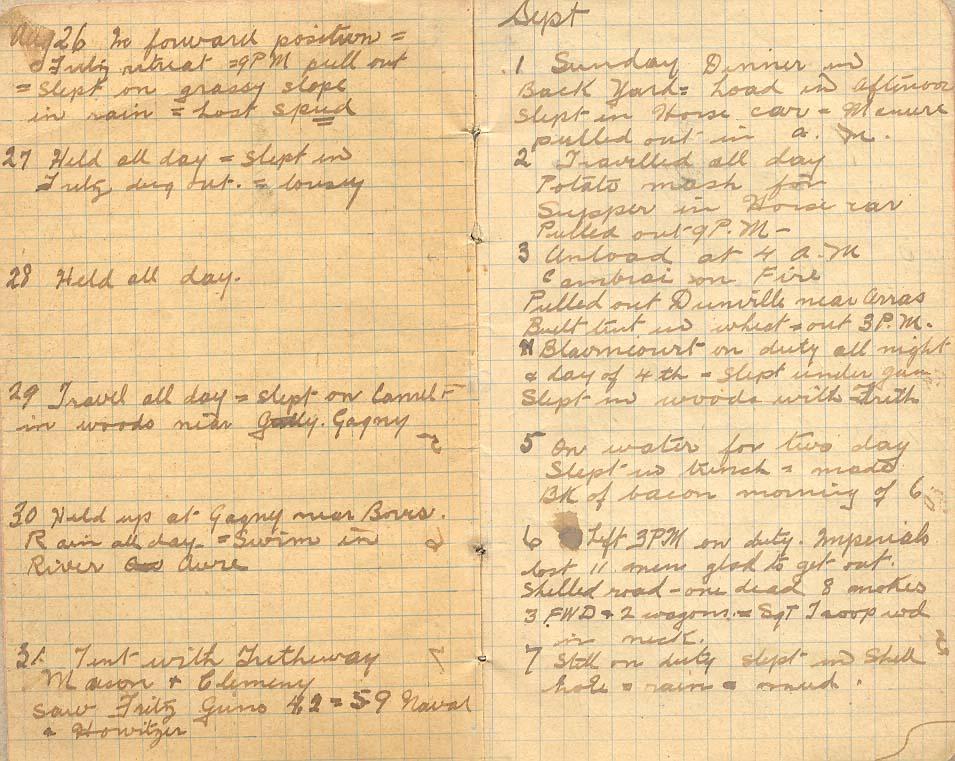 Aug 26 In forward position =
Fritz retreat = 9 PM pull out
= Slept on grassy slope
in rain = Lost spud
27 Held all day = Slept in
Fritz dug out. = lousy
28 Held all day.
29 Travel all day = slept on
in woods near Gagny
30 Held up at Gagny near Boves.
Rain all day = Swim in
River Avre
31 Tent with Tretheway
Mason + Clemeny
saw Fritz Guns 4.2 = 5.9 Naval
& Howitzer
Sept
1 Sunday Dinner in
Back Yard = Load in Afternoon
Slept in Horse car = Manure
pulled out in a. m.
2 Travelled all day
Potato mash for
Supper in Horse car
Pulled out 9 P.M -
3 Unload at 4 A.M
Cambrai on Fire
Pulled out Dunville near Arras
Built tent in wheat = out 3 P.M.
4 on duty all night
& day of 4th = Slept under gun
Slept in woods with Treth
5 On water for two day
Slept in trench = made
BK of bacon morning of 6
6 Left 3PM on duty. Imperials
lost 11 men glad to get out.
Shelled road - one dead 8
3 FWD + 2 wagons = Sgt Troop wd
in neck.
7 Still on duty slept in Shell
hole = rain = mud.